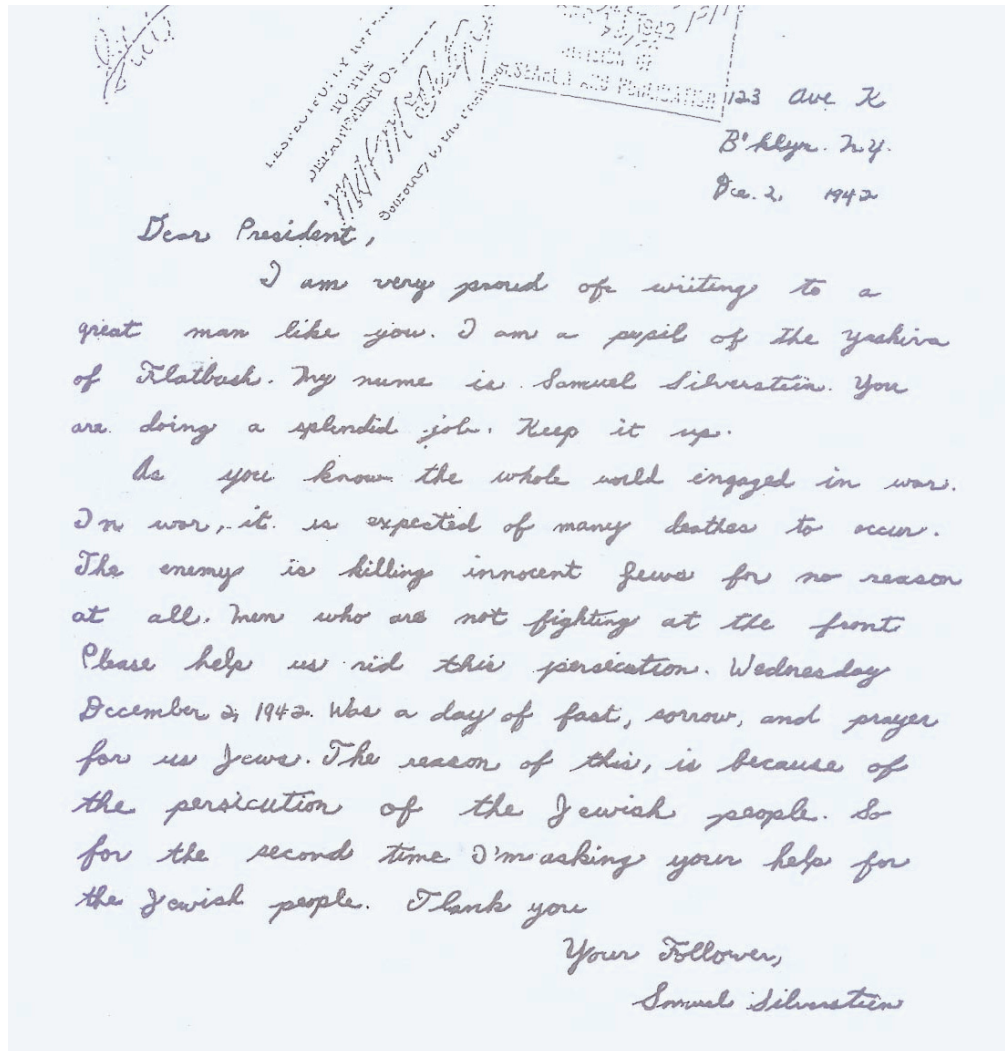 1942
DIVISION OF
RESEARCH AND PUBLICATION
RESPECTFULLY
TO THE
DEPARTMENT OF
Secretary to the President
1123 Ave K
B'klyn. N.Y.
Dec. 2, 1942
Dear President,
I am very proud of writing to a
great man like you. I am a pupil of the Yeshiva
of Flatbush. My name is Samuel Silverstein. You
are doing a splendid job. Keep it up.
As you know the whole world engaged in war.
In war, it is expected of many deathes to occur.
The enemy is killing innocent Jews for no reason
at all. Men who are not fighting at the front
Please help us rid this persicution. Wednesday
December 2, 1942. Was a day of fast, sorrow, and prayer
for us Jews. The reason of this, is because of
the persicution of the Jewish people. So
for the second time I'm asking your help for
the Jewish people. Thank you
Your Follower,
Samuel Silverstein